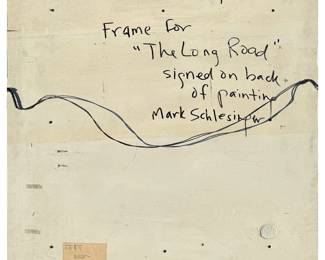 Frame for
"The Long Road"
signed on back
of painting
Mark Schlesinger